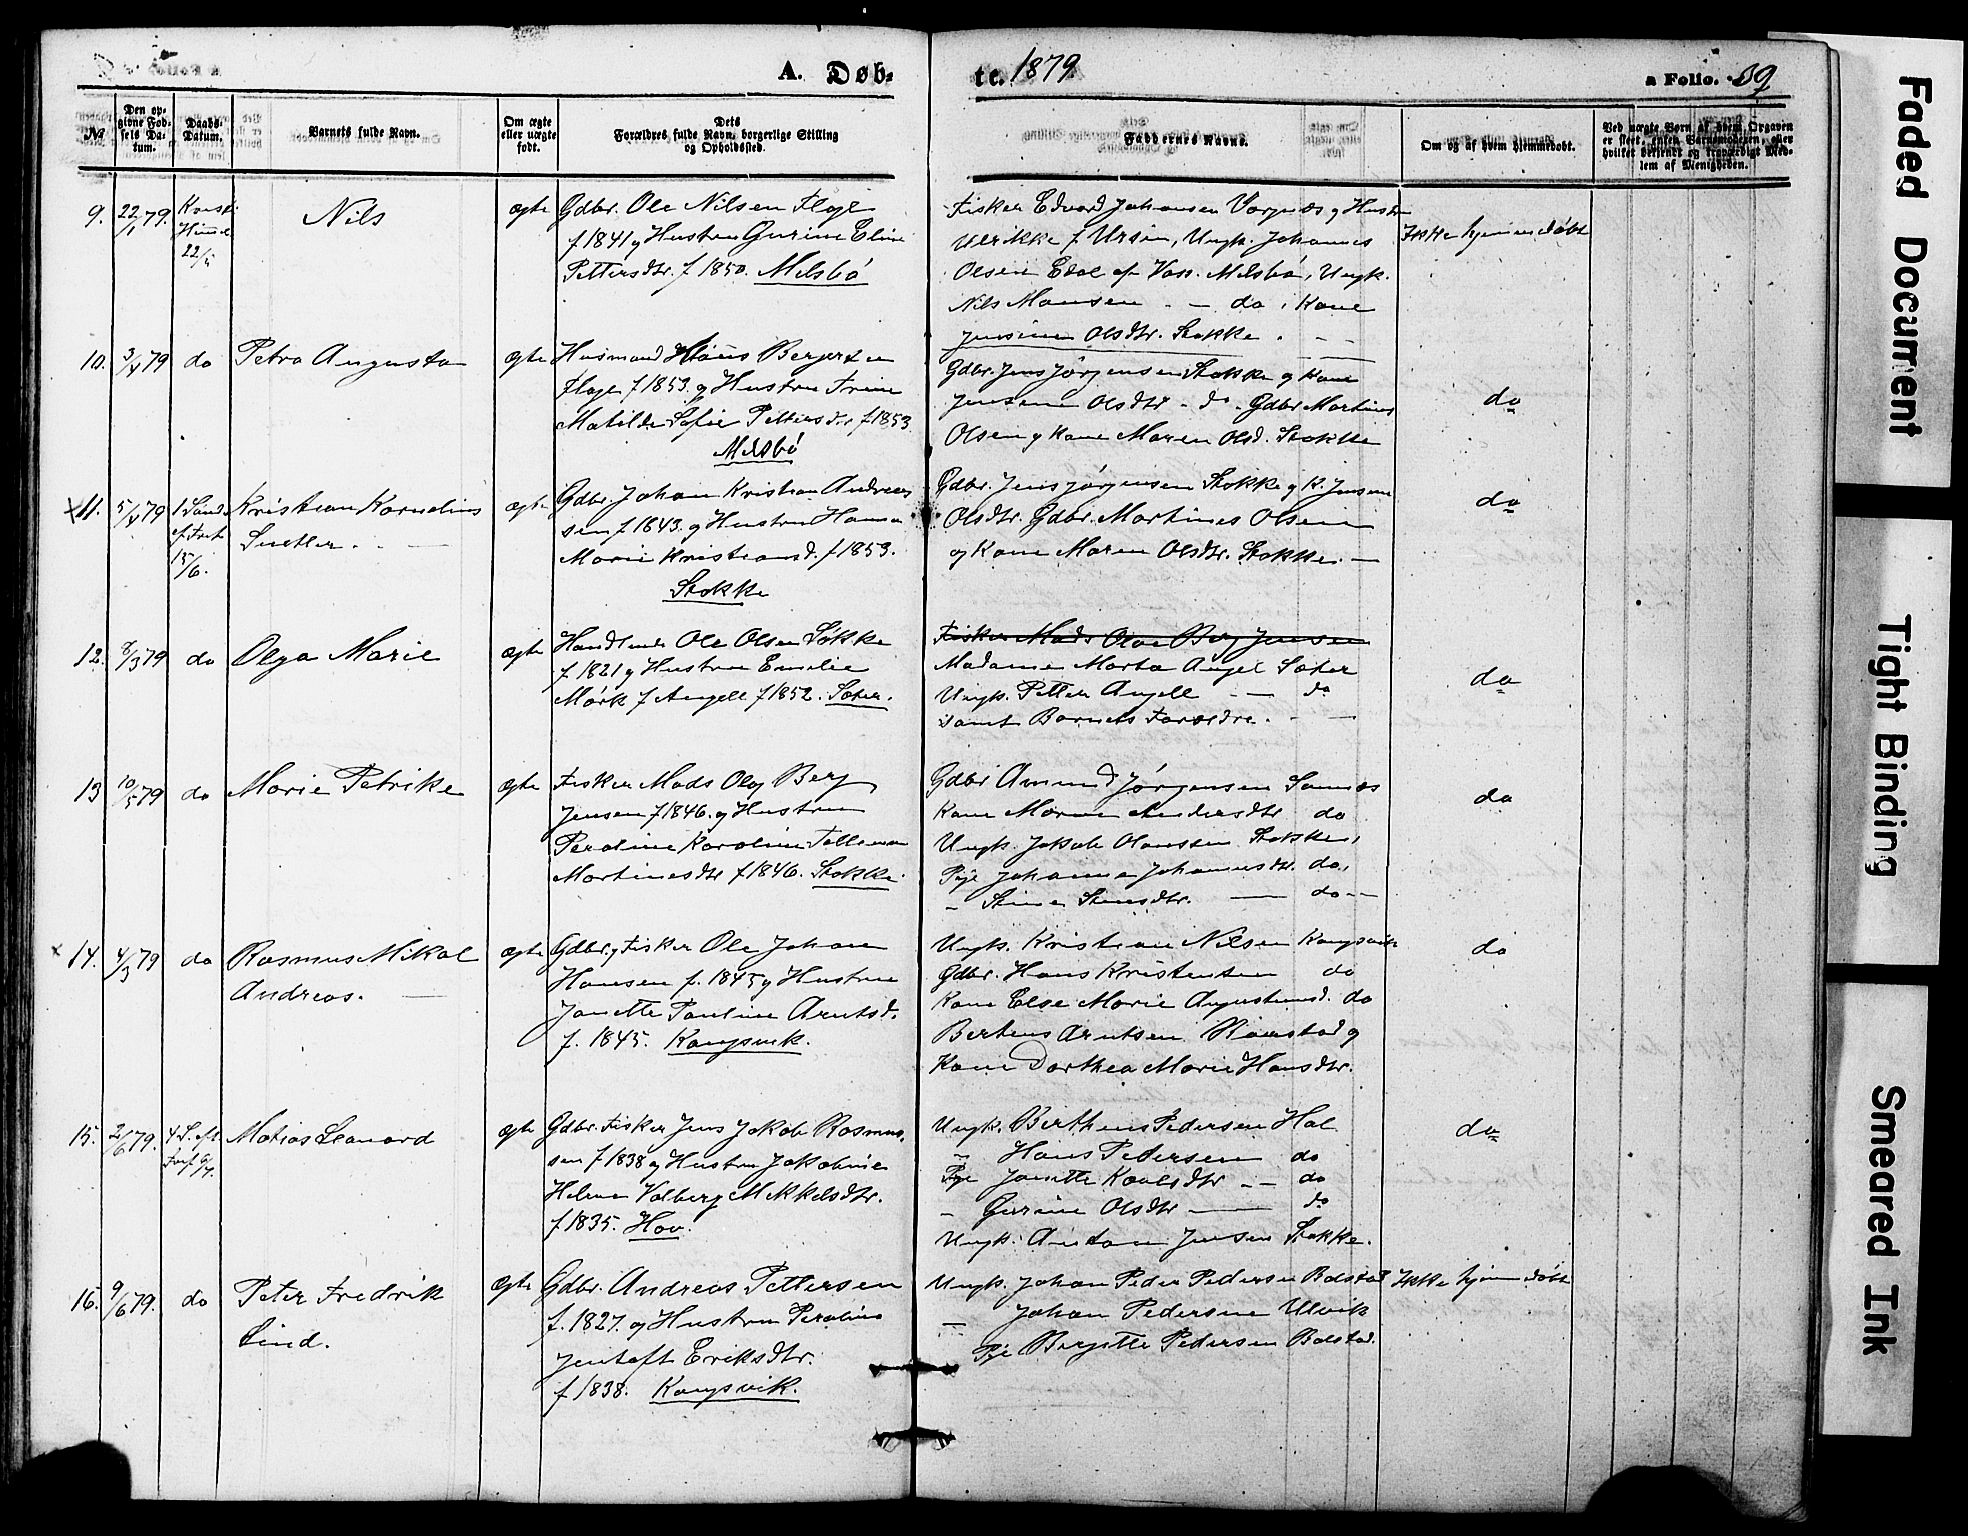 A. Døb-
te. 1879
a Folio. 39
№
Den op-
givne Fød-
sels Da-
tum.
Daabs-
Datum.
Barnets fulde Navn.
Om ægte
eller uægte
født.
Dets
Forældres fulde Navn, borgerlige Stilling
og Opholdssted.
Faddernes Navne.
Om og af hvem hjemmedøbt.
Ved uægte Børn af hvem Opgaven
er skeet, enten Barnemoderen, eller
hvilket bekjendt og troværdigt Med-
lem af Menigheden.
9. 22/1 79.
22/5
Nils
ægte
Gdbr. Ole Nilsen Floge
f 1841 og Hustru Gurine Eline
Pettersdtr. f 1850. Melsbö
Fisker Edvard Johansen Vorpnæs og Hustru
Ulrikke f Ursin, Ungk. Johannes
Olsen
Melsbö, Ungk.
Nils Monsen - do, Kone
Jensine Olsdtr. Stokke. - -
Ikke hjemmedöbt
10. 3/4 79 do Petra Augusta
ægte
Husmand Hans Bergersen
Floge f 1853. og Hustru Trine
Matilde Sofie Pettersdtr f 1853
Melsbö
Gdbr. Jens Jörgensen Stokke og Kone
Jensine Olsdtr - do - Gdbr Martines
Olsen og Kone Maren Olsd. Stokke
do
11. 5/4 79
1 Sönd.
ef. Tref.
15/6.
Kristian Kornelius
ægte
Gdbr. Johan Kristian Andreas
sen f 1843. og Hustru Hanna
Marie Kristiansd. f 1853.
Stokke
Gdbr. Jens Jörgensen Stokke og K. Jensine
Olsdtr. Gdbr. Martines Olsen
og Kone Maren Olsdtr. Stokke. -
do
12. 8/3 79 do Olga Marie
ægte
Handlende Ole Olsen Stokke
f 1821 og Hustru Emelie
Mörk f Angell f 1852. Sæter.
Fisker Mads Olai Berg Jensen
Madame Marta Angel Sæter
Ungk. Petter Angell - do
samt Barnets Forældre. - -
do
13 10/5 79 do Marie Petrike
ægte
Fisker Mads Olai Berg
Jensen f 1846. og Hustru
Peroline Karoline
Martinesdtr f 1846. Stokke.
Gdbr Amund Jörgensen Sannæs
Kone Maren Andersdtr do
Ungk. Jakob Olaussen Stokke,
Pige Johanna Johannesdtr. do,
- Stina Stensdtr. - do -
do
14. 4/3 79 do Rasmus Mikal
Andreas. -
ægte
Gdbr. og Fisker Ole Johan
Hansen f. 1845 og Hustru
Janette Pauline Arntsd.
f. 1845. Kongsvik.
Ungk. Kristian Nilsen Kongsvik
Gdbr. Hans Kristensen do
Kone Else Marie Augustinusd. do
Bertens Arntsen og
Kone Dorthea Marie Hansdtr.
do
15. 2/6 79.
4 S. eft.
Tref 6/7.
Matias Leonard
ægte
Gdbr. Fisker Jens Jakob Rasmus-
sen f 1838 og Hustru Jakobine
Helene Volberg Mikkelsdtr.
f 1835. Hov.
Ungk. Berthens Pedersen Hol
" Hans Pedersen do
Pige Janette Karlsdtr - - do
- Gurine Olsdtr - do
Ungk. Anton Jensen Stokke.
do
16. 9/6 79. do Peter Fredrik
Lind.
ægte
Gdbr. Andreas Pettersen
f. 1827. og Hustru Peroline
Jentoft Eriksdtr.
f 1838. Kongsvik.
Ungk. Johan Peder Pedersen Bolstad
- Johan Pedersen Ulvik
Pige Bergitte Pedersen Bolstad.
Ikke hjemmedöbt
Faded Document
Tight Binding
Smeared Ink